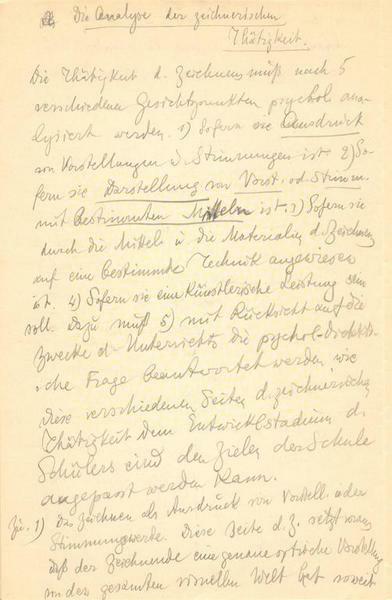 Die Analyse der zeichnerischen
Thätigkeit.
Die Thätigkeit d. Zeichnens muß nach 5
verschiedenen Gesichtspunkten psychol. ana-
lysiert werden. 1) Sofern sie Ausdruck
von Vorstellungen u. Stimmungen ist. 2) So-
fern sie Darstellung von Vorst. od. Stimm.
mit bestimmten Mitteln ist. 3) Sofern sie
durch die Mittel u. die Materialien d. Zeichnens
auf eine bestimmte Technik angewiesen
ist. 4) Sofern sie eine künstlerische Leistung sein
soll. Dazu muß 5) mit Rücksicht auf die
Zwecke d. Unterrichts die psychol.-didakti-
sche Frage beantwortet werden, wie
diese verschiedenen Seiten d. zeichnerischen
Thätigkeit dem Entwicklstadium d.
Schülers und den Zielen der Schule
angepasst werden kann.
Zu. 1) Das Zeichnen als Ausdruck von Vorstell. oder
Stimmung. Diese Seite d. Z. setzt voraus
daß der Zeichnende eine genaue optische Vorstellung
von der gesamten visuellen Welt hat soweit